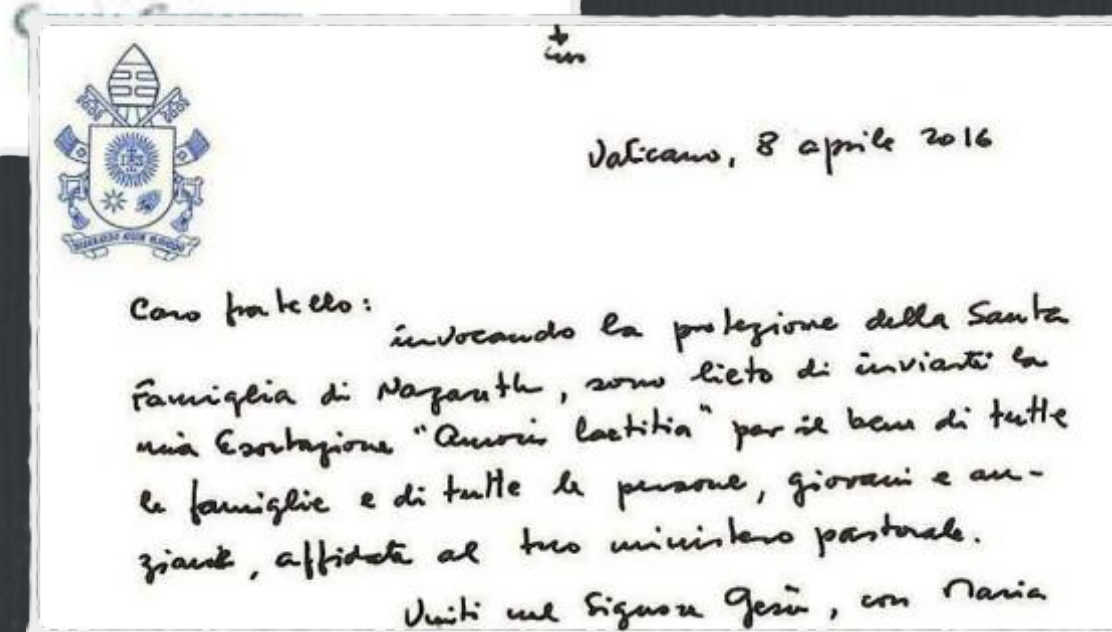 Vaticano, 8 aprile 2016
IHS
MISERANDO ATQUE ELIGENDO
Caro fratello:
invocando la protezione della Santa
Famiglia di Nazareth, sono lieto di inviarti la
mia Esortazione "Amoris laetitia" per il bene di tutte
le famiglie e di tutte le persone, giovani e an-
ziane, affidate al tuo ministero pastorale.
Uniti nel Signore Gesù, con Maria